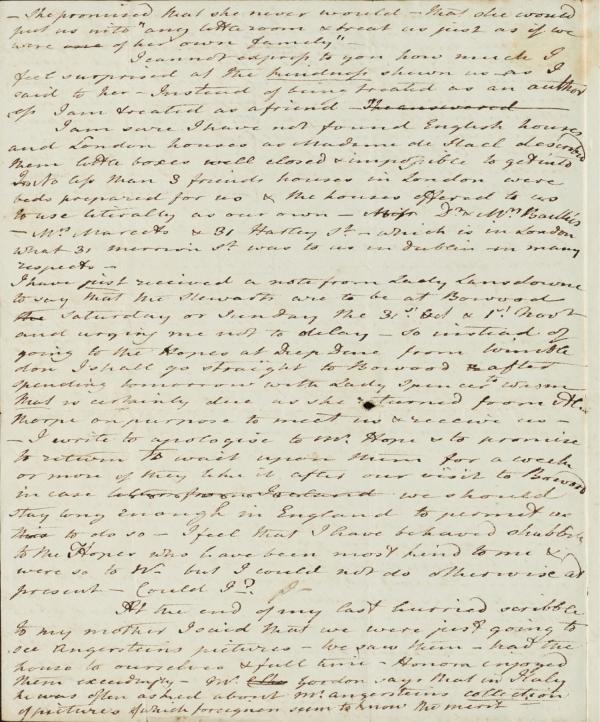 – She promised that she never would – that she would
put us into "any little room & treat us just as if we
were one of her own family" –
I cannot express to you how much I
feel surprised at the kindness shewn us – as I
said to her – Instead of being treated as an author
ess I am treated as a friend – She answered
I am sure I have not found English houses
and London houses as Madame de Stael described
them little boxes well closed & impossible to get into
No less than 3 friends houses in London were
beds prepared for us & the houses offered to us
to use literally as our own – Dr & Mrs Baillies
– Mrs Marcets & 31 Harley St – which is in London
what 31 merrion St was to us in Dublin – in many
respects –
I have just received a note from Lady Lansdowne
to say that the Stewarts are to be at Bowood
the Saturday or Sunday the 31st Oct & 1st Novr
and urging me not to delay – So instead of
going to the Hopes at Deep Dene from Wimble
don I shall go straight to Bowood after
spending tomorrow with Lady Spencer
that is certainly due as she returned from Al
thorpe on purpose to meet us & receive us –
– I write to apologise to Mr Hope & to promise
to return to wait upon them for a week
or more if they like it after our visit to Bowood
in case we should
stay long enough in England to permit us
to do so – I feel that I have behaved shabbily
to the Hopes who have been most kind to me &
were so to W– but I could not do otherwise at
present – Could I?
At the end of my last hurried scribble
to my mother I said that we were just going to
see Angersteins pictures – we saw them – had the
house to ourselves & full time – Honora enjoyed
them exceedingly – Mr Gordon says that in Italy
he was often asked about Mr angersteins collection
of pictures of which foreigners seem to know the merit –